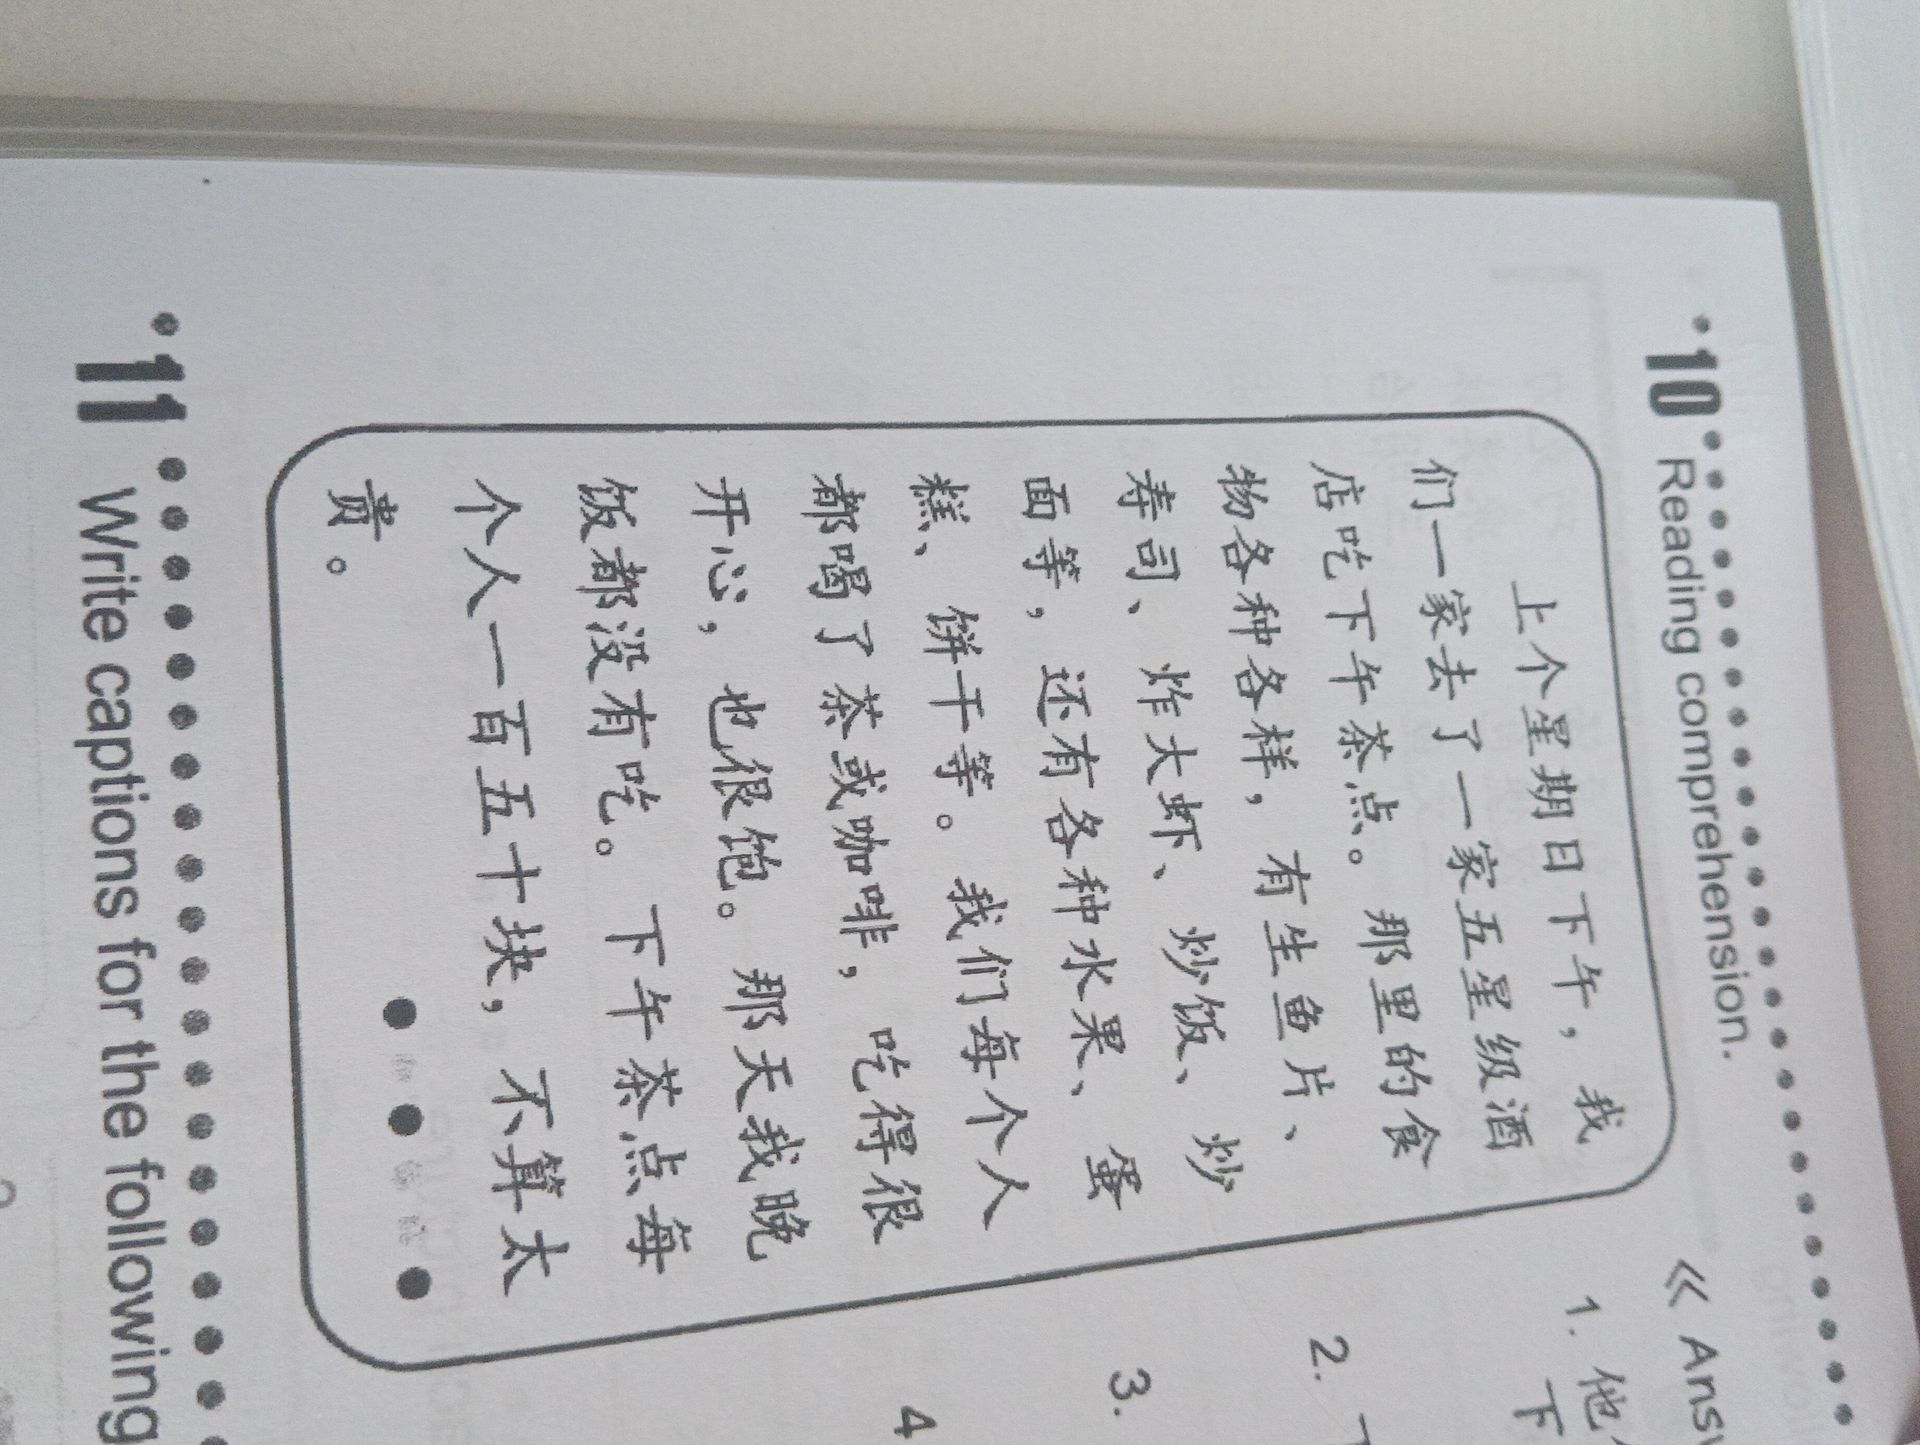 10 Reading comprehension.
上个星期日下午，我
们一家去了一家五星级酒
店吃下午茶点。那里的食
物各种各样，有生鱼片、
寿司、炸大虾、炒饭、炒
面等，还有各种水果、蛋
糕、饼干等。我们每个人
都喝了茶或咖啡，吃得很
开心，也很饱。那天我晚
饭都没有吃。下午茶点每
个人一百五十块，不算太
贵。
《 Answ
1. 他
下
2.
3.
4
11 Write captions for the following